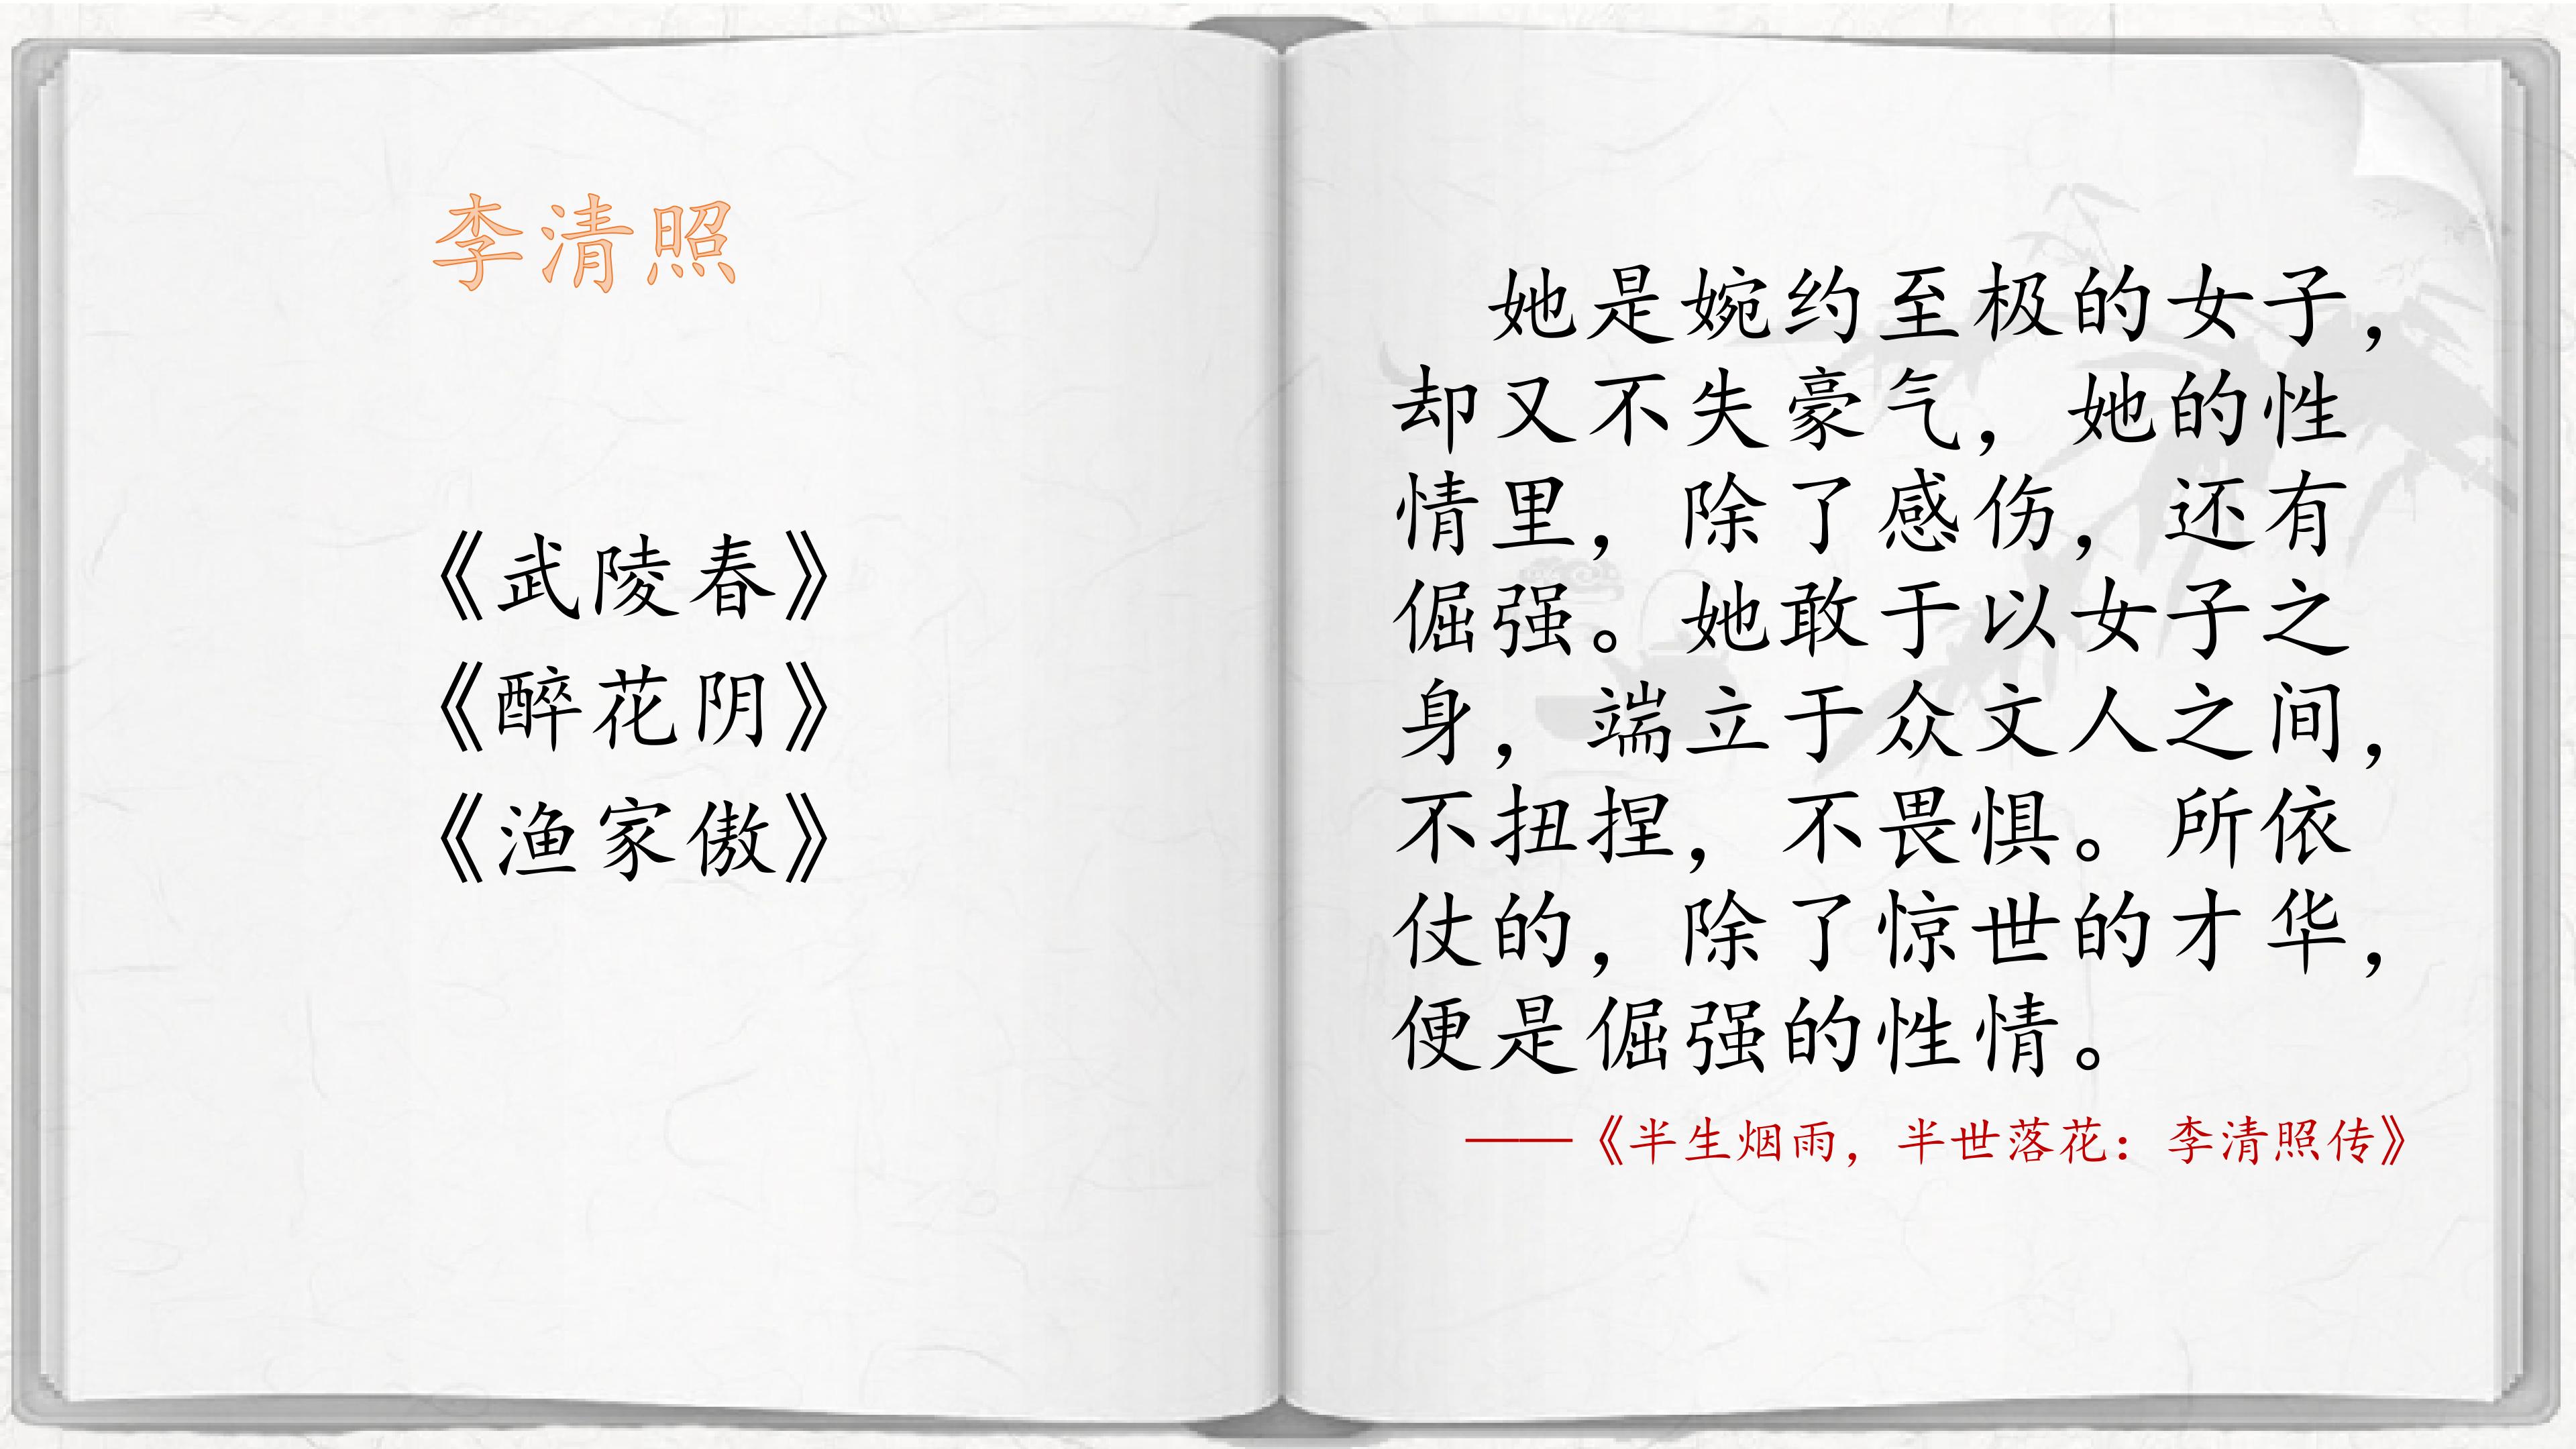 李清照
《武陵春》
《醉花阴》
《渔家傲》
她是婉约至极的女子，
却又不失豪气，她的性
情里，除了感伤，还有
倔强。她敢于以女子之
身，端立于众文人之间，
不扭捏，不畏惧。所依
仗的，除了惊世的才华，
便是倔强的性情。
——《半生烟雨，半世落花：李清照传》